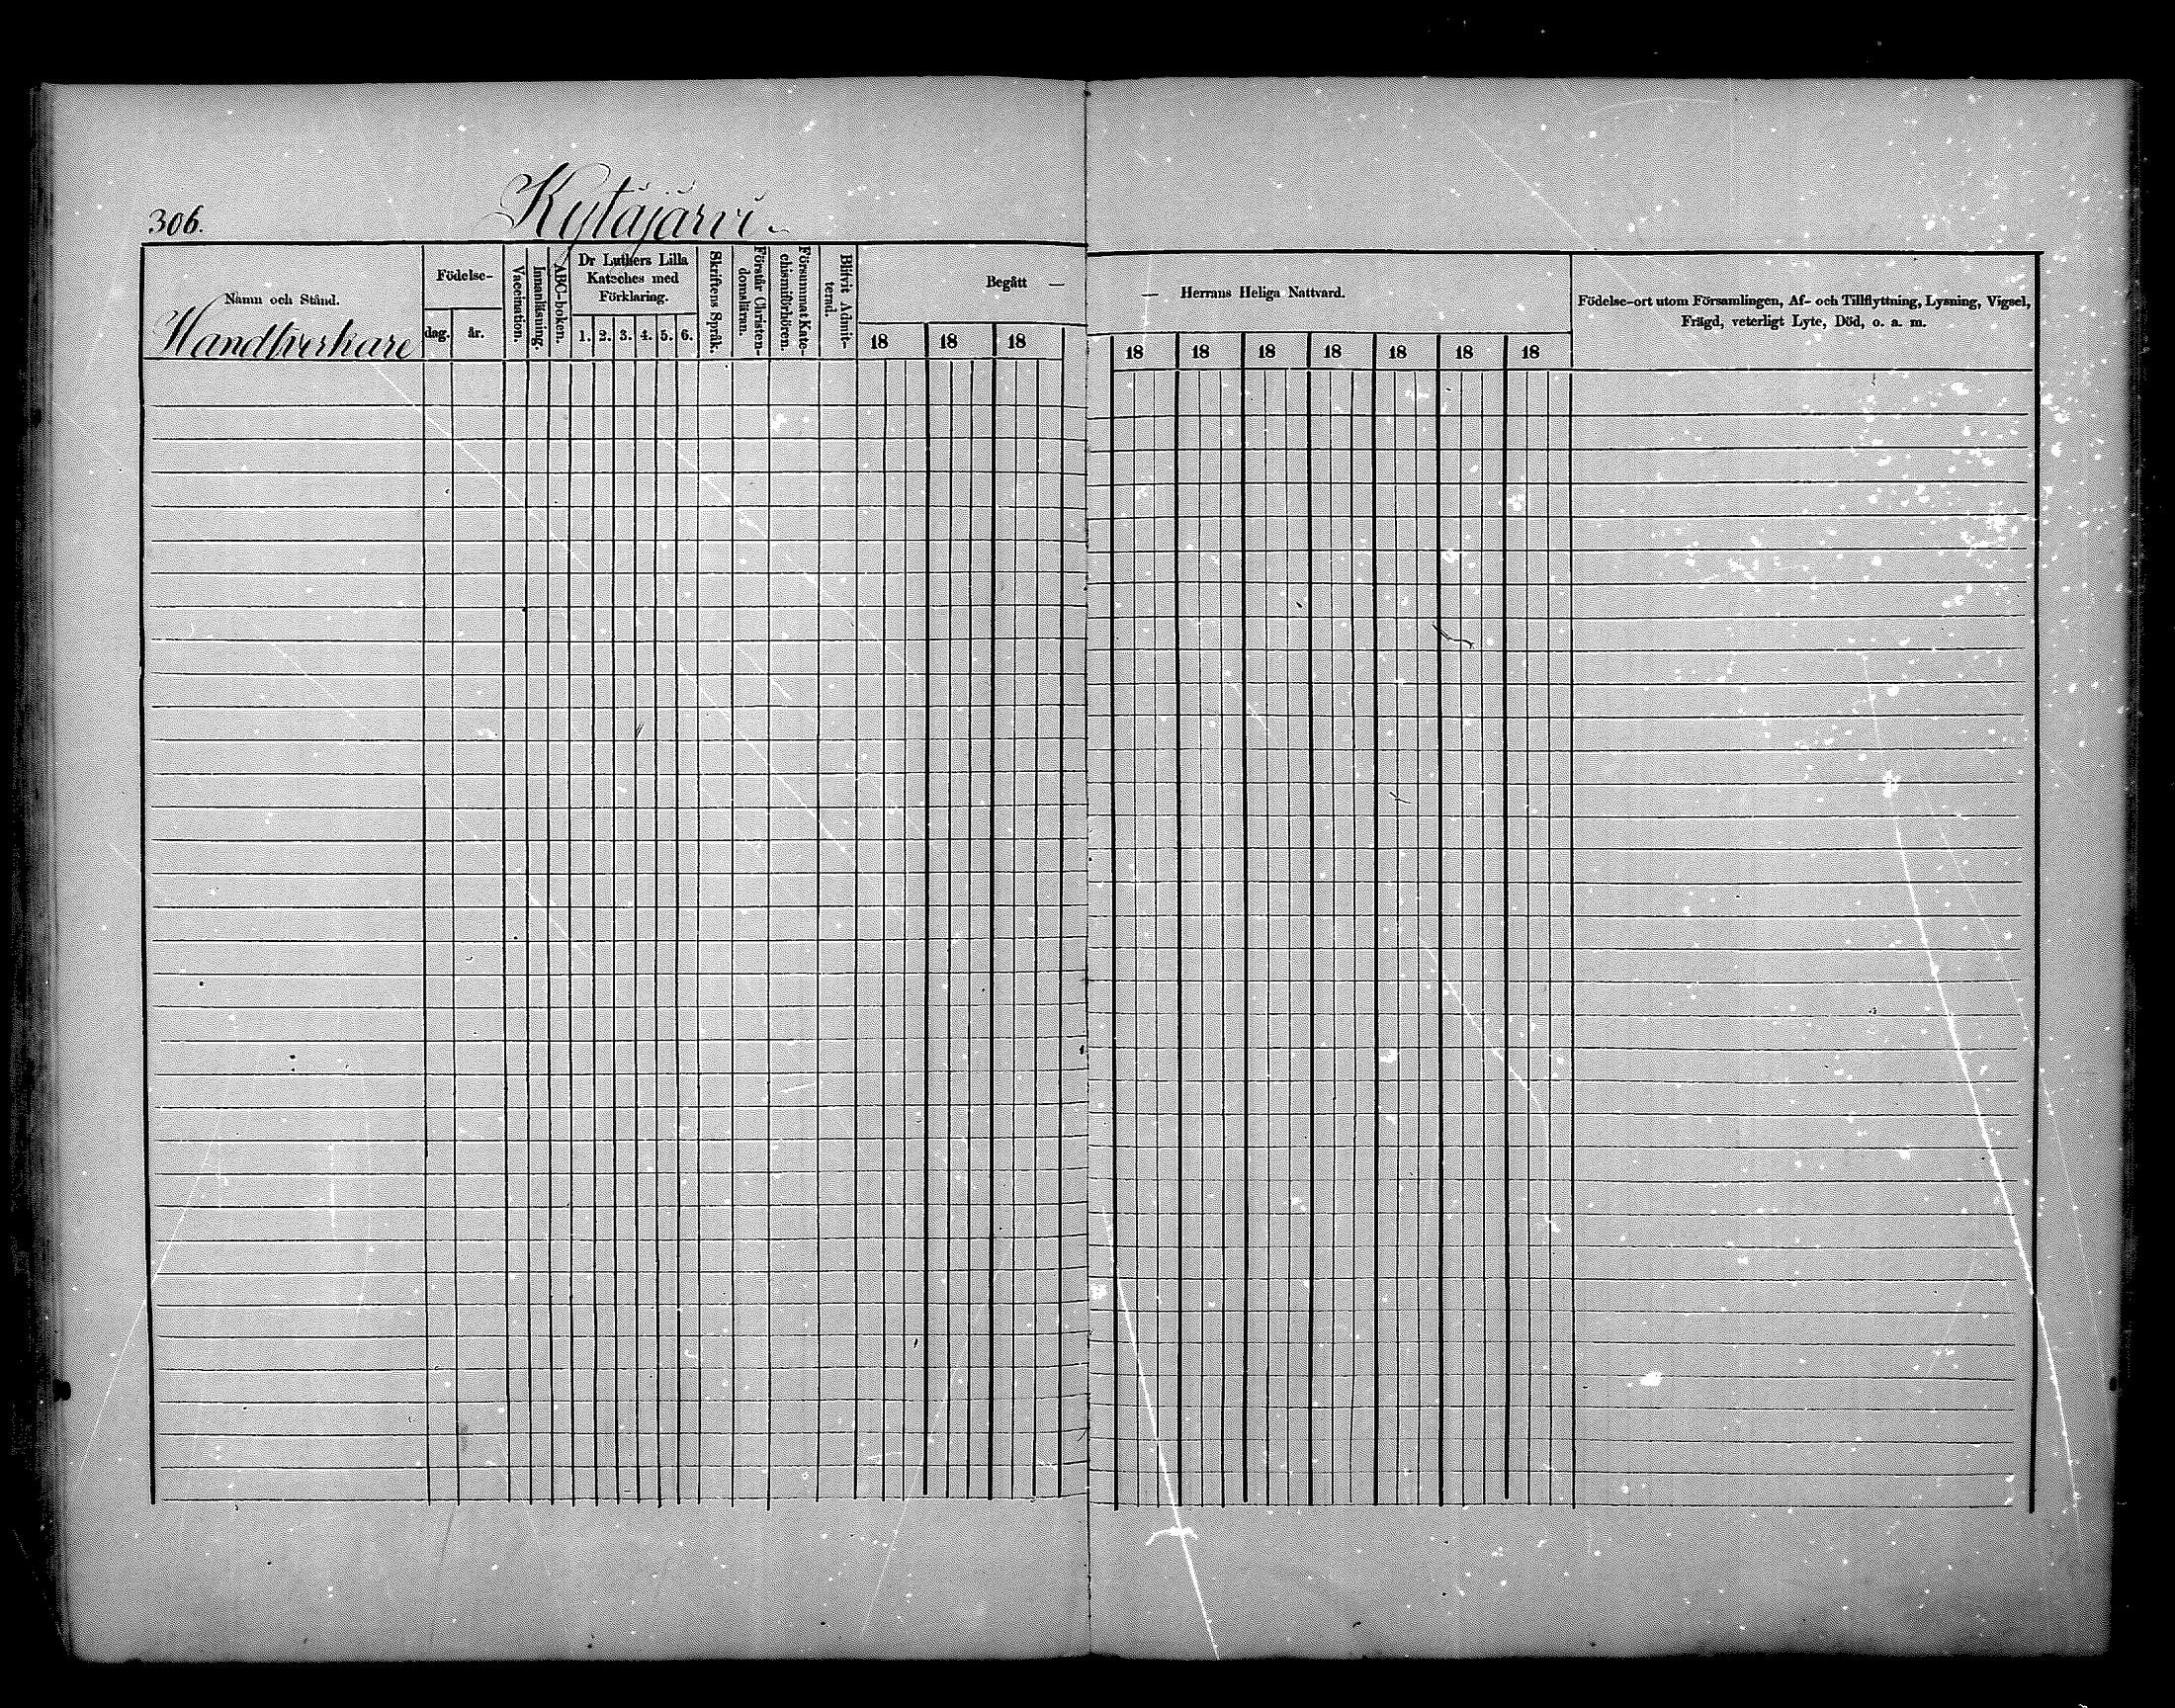 306.
Kytäjärvi.
Namn och Stånd.
Handtverkare
Födelse-
dag.
år.
Vaccination.
Innanläsning.
ABC-boken.
Dr Luthers Lilla
Kateches med
Förklaring.
1. 2. 3. 4. 5. 6.
Skriftens Språk.
Förstår Christen-
domsläran.
Försummat Kate-
chismiförhören.
Blifvit Admit-
terad.
Begått —
18 18 18
— Herrans Heliga Nattvard.
18 18 18 18 18 18 18
Födelse-ort utom Församlingen, Af- och Tillflyttning, Lysning, Vigsel,
Frägd, veterligt Lyte, Död, o. a. m.